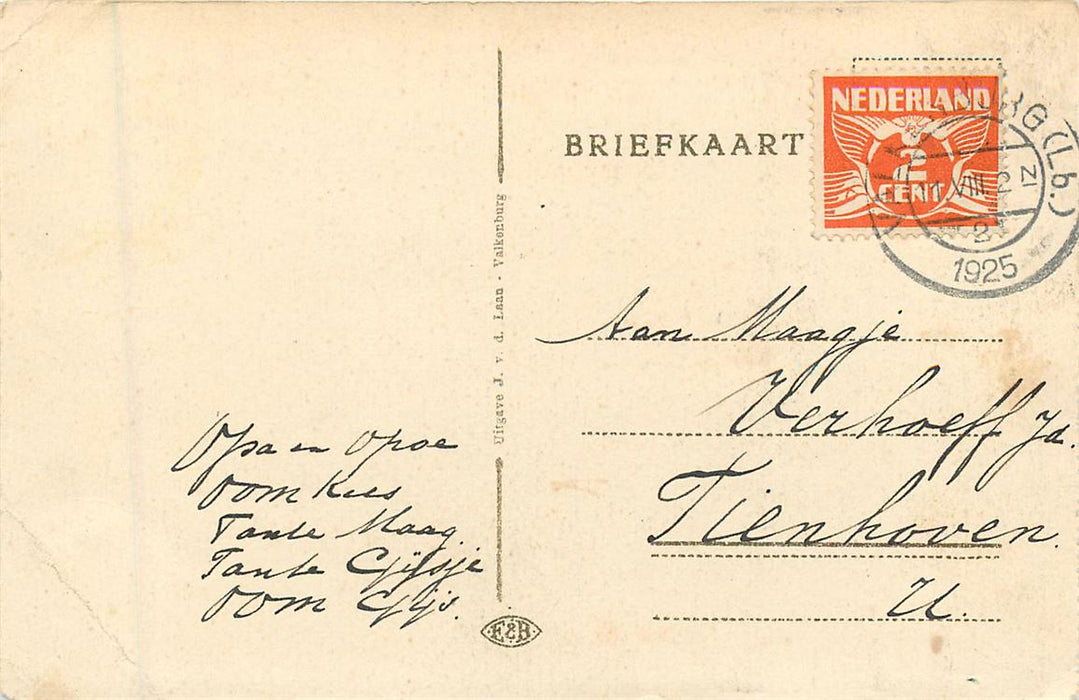 BRIEFKAART
NEDERLAND
2
CENT
VALKENBURG (Lb.)
11 VIII
1925
Uitgave J. v. d. Laan - Valkenburg
Aan Maagje
Verhoeff Jd.
Tienhoven.
U.
Opa en Opoe
Oom Kees
Tante Maag.
Tante Gijsje
Oom Gijs.
E&B